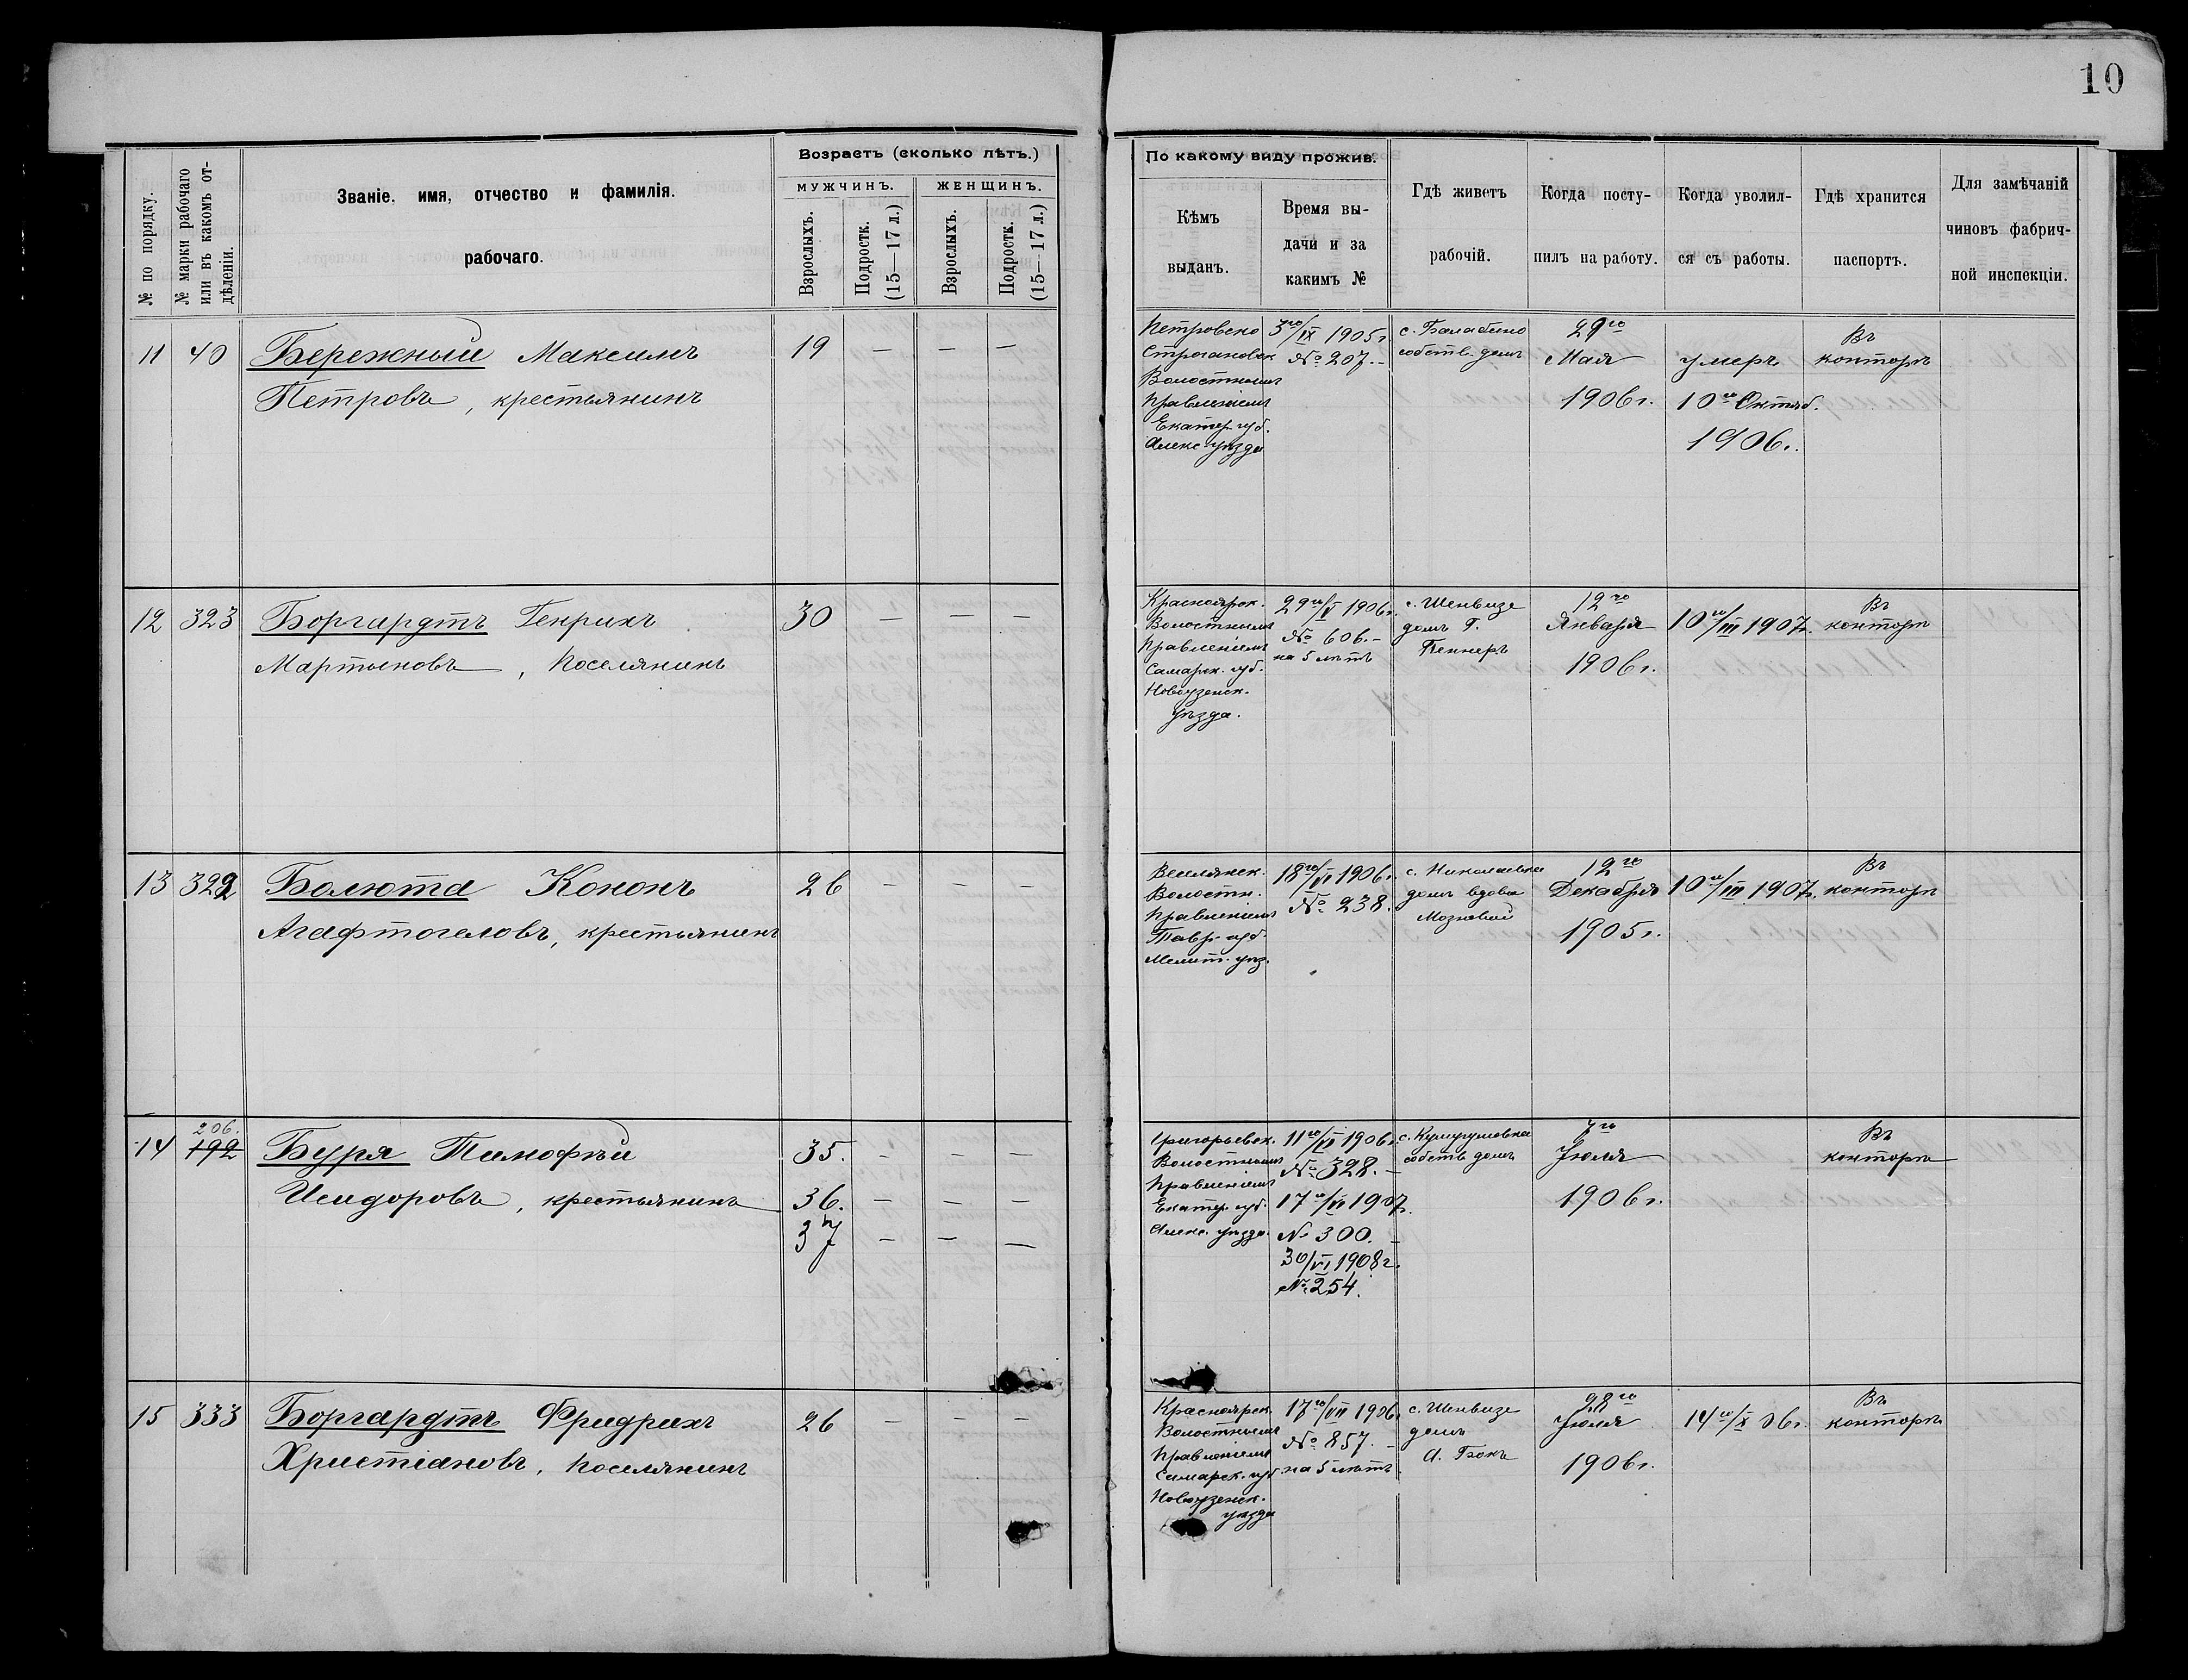 10
№ по порядку.
№ марки рабочаго
или въ какомъ от-
дѣленіи.
Званіе, имя, отчество и фамилія.
рабочаго.
Возрастъ (сколько лѣтъ.)
МУЖЧИНЪ.
ЖЕНЩИНЪ.
Взрослыхъ.
Подростк.
(15—17 л.)
Взрослыхъ.
Подростк.
(15—17 л.)
По какому виду прожив.
Кѣмъ
выданъ.
Время вы-
дачи и за
какимъ №
Гдѣ живетъ
рабочій.
Когда посту-
пилъ на работу.
Когда уволил-
ся съ работы.
Гдѣ хранится
паспортъ.
Для замѣчаній
чиновъ фабрич-
ной инспекціи.
11 40 Бережный Максимъ 19 — — —
Петровъ, крестьянинъ
Петровско
Строгановск
Волостнымъ
Правленіемъ
Екатер. губ.
Алекс. уѣзда
3го/IX 1905г.
№ 207. -
с. Балабино
собств. домъ
29го
Мая
1906г.
умеръ
10го Октяб.
1906г.
Въ
конторѣ
12 323 Боргардтъ Генрихъ 30 — — —
Мартыновъ, поселянинъ
Красноярск.
Волостнымъ
Правленіемъ
Самарск. губ.
Новоузенск.
уѣзда.
29го/V 1906г.
№ 606. -
на 5 лѣтъ
с. Шенвизе
домъ Г.
Пеннеръ
12го
Января
1906г.
10го/III 1907г.
Въ
конторѣ
13 322 Болюта Кононъ 26 — — —
Агафтогеловъ, крестьянинъ
Волостн.
Правленіемъ
Тавр. губ.
Мелит. уѣз.
18го/VI 1906г.
№ 238.
с. Николаевка
домъ вдова
12го
Декабря
1905г.
10го/III 1907г.
Въ
конторѣ
206.
14 192 Буря Тимофѣй 35. — — —
Исидоровъ, крестьянинъ 36. — — —
37 — — —
Григорьевск.
Волостнымъ
Правленіемъ
Екатер. губ.
Алекс. уѣзда.
11го/VI 1906г.
№ 328. -
17го/VI 1907г.
№ 300. -
30/VI 1908г.
№ 254.
с. Кушугумовка
собств. домъ
7го
Іюля
1906г.
Въ
конторѣ
15 333 Боргардтъ Фридрихъ 26 — — —
Христіановъ, поселянинъ
Красноярск.
Волостнымъ
Правленіемъ
Самарск. губ.
Новоузенск.
уѣзда
17го/VII 1906г.
№ 857. -
на 5 лѣтъ
с. Шенвизе
домъ
А. Бокъ
28го
Іюля
1906г.
14го/X 06г.
Въ
конторѣ